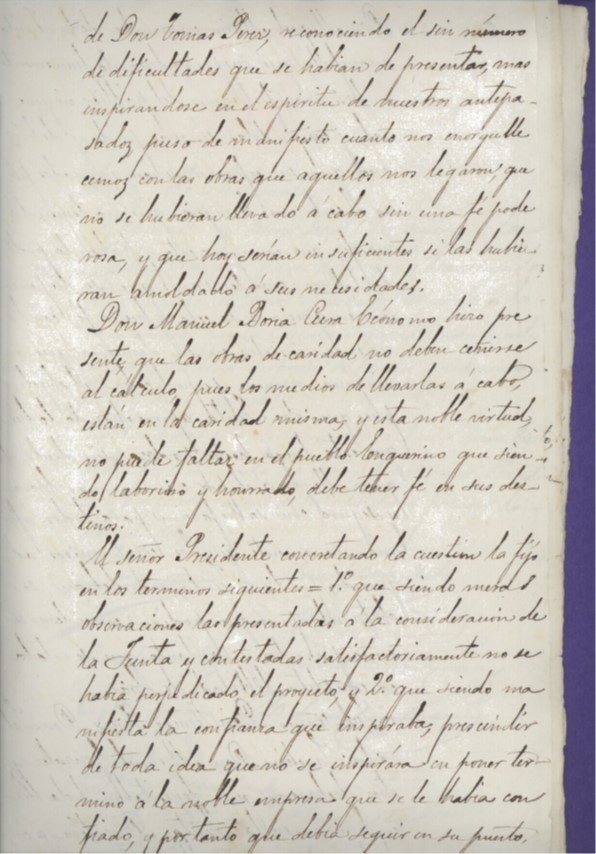 de Don Tomas Perez, reconociendo el sin número
de dificultades que se habian de presentar, mas
inspirandose en el espiritu de nuestros antepa-
sados, puso de manifiesto cuanto nos enorgulle
cemos con las obras que aquellos nos legaron, que
no se hubieran llevado á cabo sin una fé pode
rosa, y que hoy serian insuficientes si las hubie-
ran amoldado á sus necesidades.
Don Manuel Doria Cura Ecónomo hizo pre
sente, que las obras de caridad no deben ceñirse
al cálculo, pues los medios de llevarlas á cabo,
están en la caridad misma, y esta noble virtud,
no puede faltar en el pueblo Enguerino que sien-
do laborioso y honrrado, debe tener fé en sus des-
tinos.
El señor Presidente concretando la cuestion la fijó
en los terminos siguientes = 1.º que siendo meras
observaciones las presentadas á la consideracion de
la Junta y contestadas satisfactoriamente no se
habia perjudicado el proyecto, y 2.º que siendo ma
nifiesta la confianza que inspiraba, prescindir
de toda idea que no se inspirára en poner ter-
mino á la noble empresa que se le habia con
fiado, y por tanto que debia seguir en su puesto,